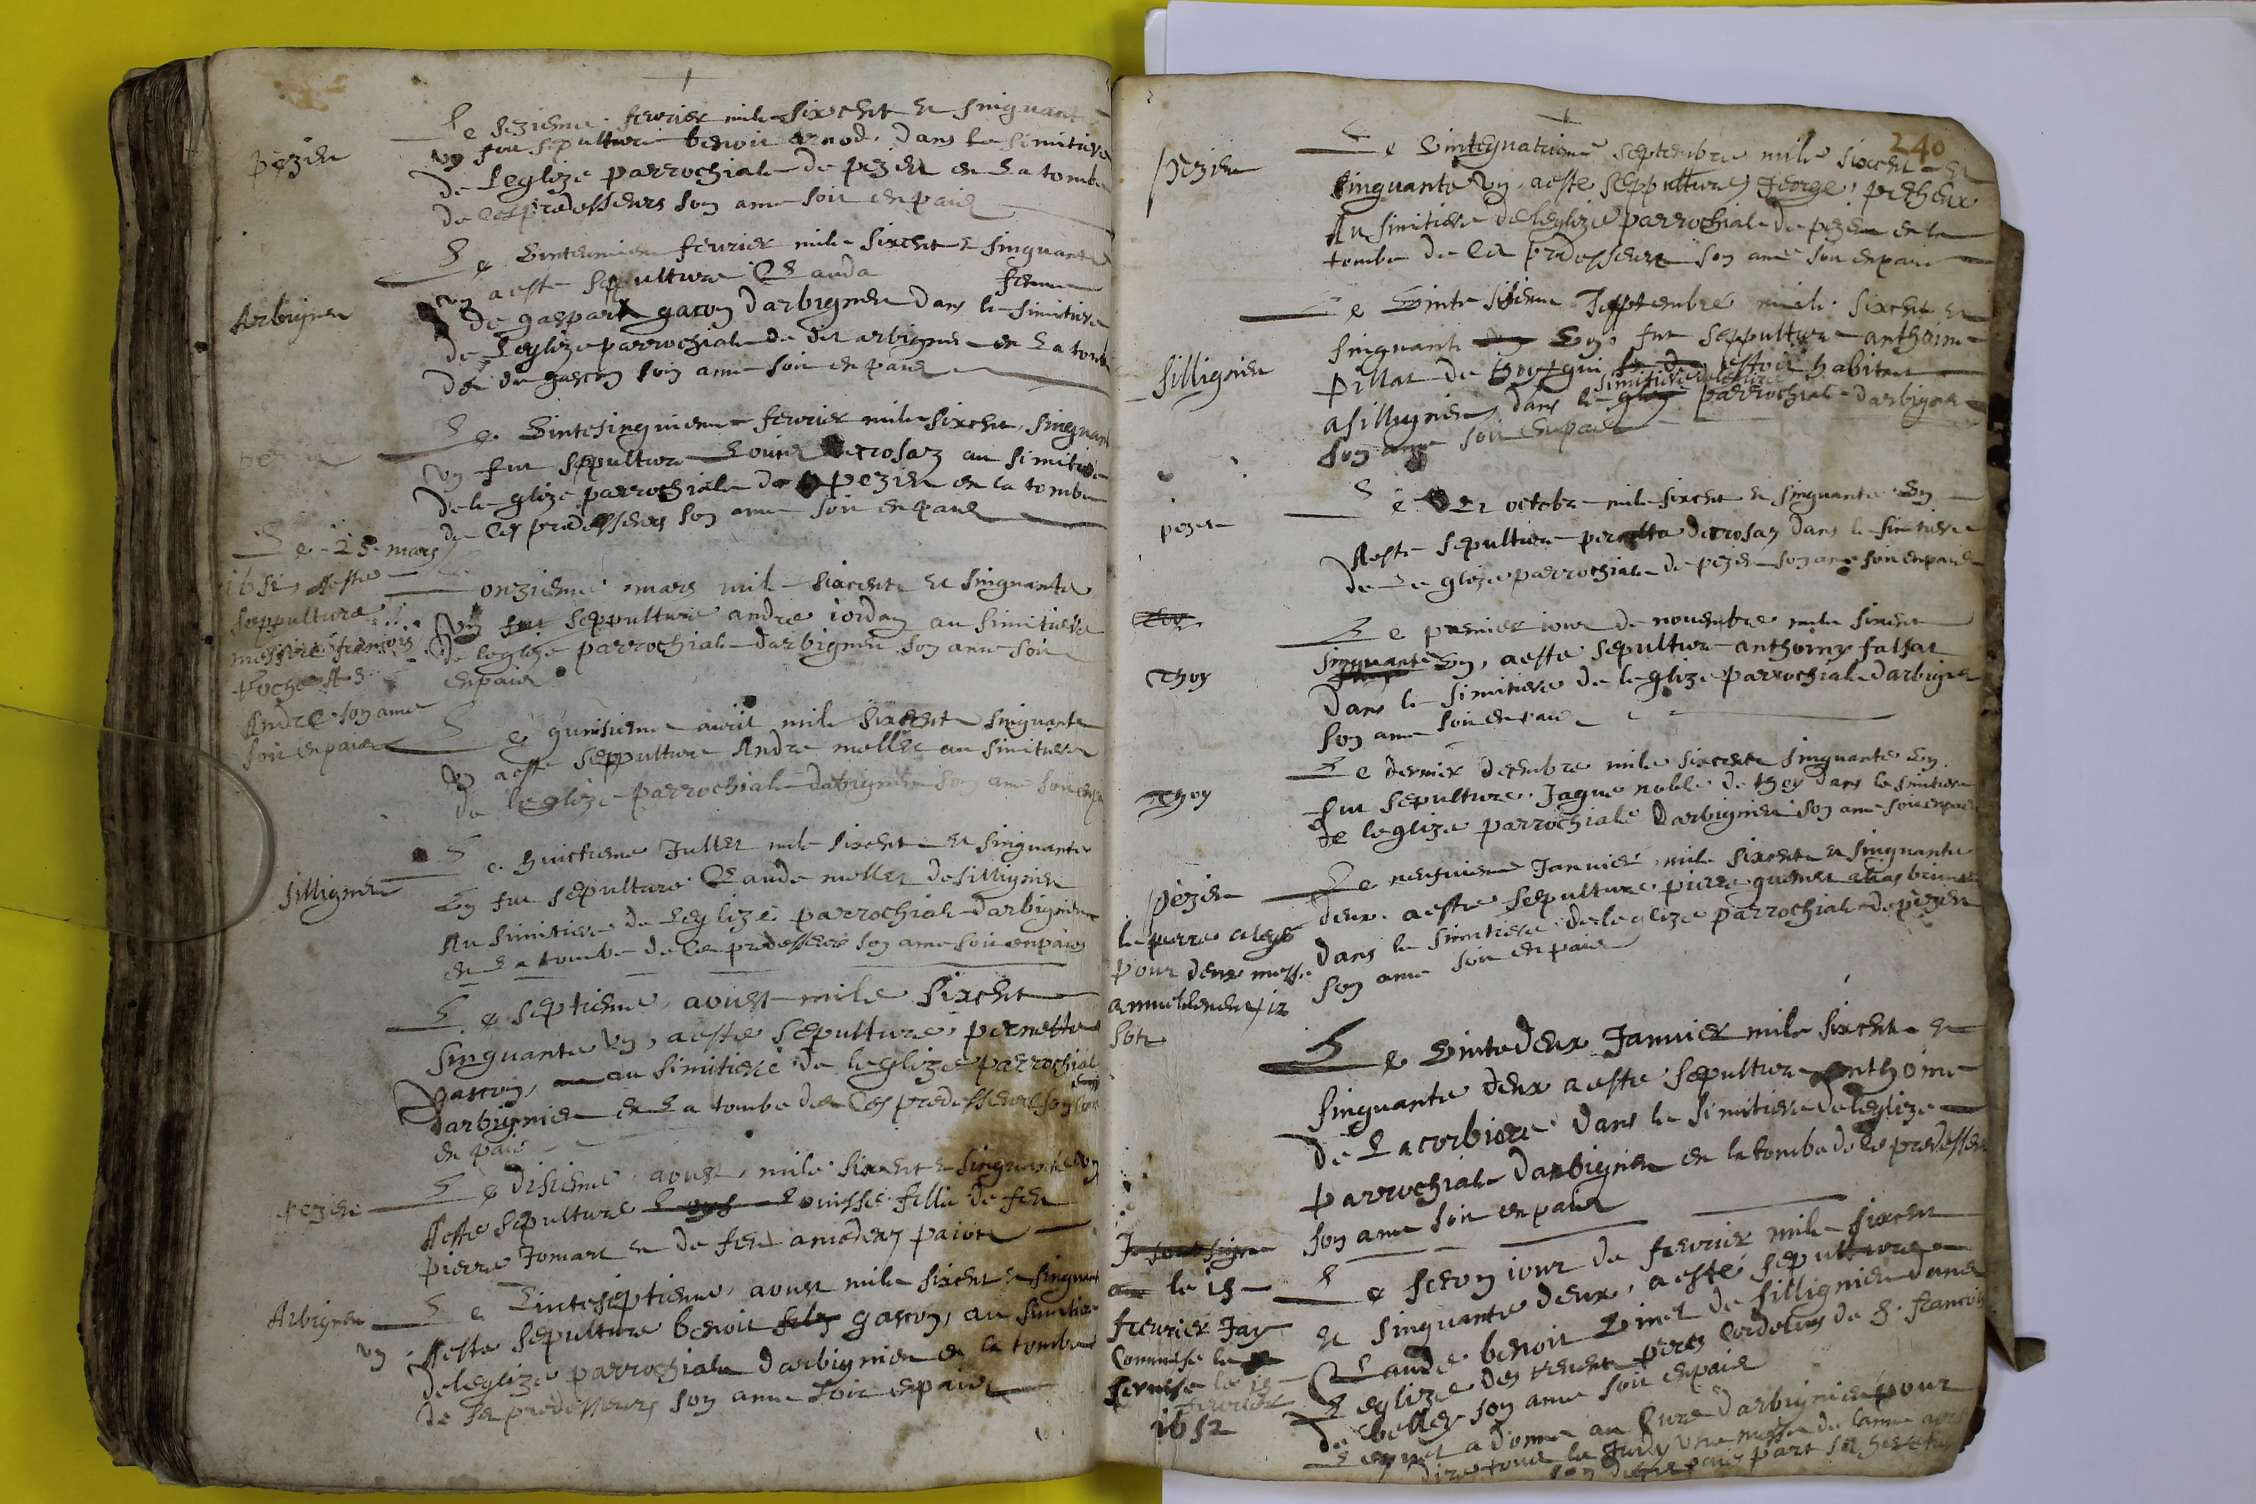 pezieu
Le sezieme feuvrier mile sixcent et singuant
vn fut sepulturé benoit dans le simitiere
de leglize parrochiale de pezieu en la tombe
de ces predesseurs son ame soit en paix
Arbignieu
Le feuvrier mile sixcent et singuante
vn a esté seppulturé Clauda femme
de gaspart gacon darbignieu dans le simitiere
de leglize parrochiale du dit arbignieu en la tombe
du gascon son ame soit en paix
Le vintesinquieme feuvrier mile sixcent singuante
vn fut sepulturé Louis decrosaz au simitiere
de leglize parrochiale de pezieu en la tombe
de ces predesseurs son ame soit en paix
Le 25 mars
1651 a esté
seppulturé
messire françois
André son ame
soit en paix
onzieme mars mile sixcent et singuante
vn fut seppulturé andre iordan au simitiere
de leglize parrochiale darbignieu son ame soit
en paix
Le quinsieme avril mile sixcent singuante
vn a esté seppulturé Andre mollet au simitiere
de leglize parrochiale darbignieu son ame soit en paix
sillignieu
Le huictieme Jullet mile sixcent et singuante
vn fut sepulturé Claude mollet de sillignieu
Au simitiere de leglize parrochiale darbignieu
en la tombe de ces predesseurs son ame soit en paix
Le septieme aoust mile sixcent
singuante vn a esté sepulturé pernette
gascon, au simitiere de leglize parrochiale
darbignieu en la tombe de ces predesseurs son ame soit
en paix
pezieu
Le disieme aoust mile sixcent et singuante vn
A esté sepulturé Louisse fillie de feu
pierre Jomart et de feu amedeaz paiot
Arbignieu
Le vinteseptieme aoust mile sixcent et singuante
vn A esté sepulturé benoit gascon, au simitiere
de leglize parrochiale darbignieu en la tombe
de ces predesseurs son ame soit en paix
240
pezieu
Le vintequatrieme septembre mile sixcent et
singuante vn, a esté seppulturé George petheux
Au simitiere de leglize parrochiale de pezieu en la
tombe de ces predesseurs son ame soit en paix
sillignieu
Le vinte sisieme septembre mile sixcent et
singuante vn fut seppulturé anthoine
pillat de thoy qui estoit habitant
a sillignieu dans le simitiere de leglize parrochiale darbignieu
son ame soit en paix
pezieu
Le octobre mile sixcent et singuante vn
A esté sepulturé pernette decrosaz dans le simitiere
de leglize parrochiale de pezieu son ame soit en paix
Thoy
Le premier iour de novembre mile sixcent
singuante vn, a esté sepulturé anthoiny falsat
dans le simitiere de leglize parrochiale darbignieu
son ame soit en paix
Thoy
Le dernier desembre mile sixcent singuante vn
fut sepulturé Jaque noble de thoy dans le simitiere
de leglize parrochiale darbignieu son ame soit en paix
pezieu
Le neufvieme Janvier mile sixcent et singuante
deux a esté sepulturé pierre alias
dans le simitiere de leglize parrochiale de pezieu
son ame soit en paix
le pierre a legé
pour deux messe
annuellement 12
sots
Le vintedeux Janvier mile sixcent et
singuante deux a esté sepulturé anthoine
de Lacorbiere dans le simitiere de leglize
parrochiale darbignieu en la tombe de ces predesseurs
son ame soit en paix
Je soussigné
le 15
feuvrier Jay
commensé le
servisse le 15
feuvrier
1652
Le secon iour de feuvrier mile sixcent
et singuante deux, a esté sepulturé
Claude benoit binet de sillignieu dans
leglize des reverents peres Cordeliers de S. françois
de belley son ame soit en paix
Lequel a donné au Curé darbignieu pour
dire tous le Judy une messe de lanné apres
son decces par ses heretiers